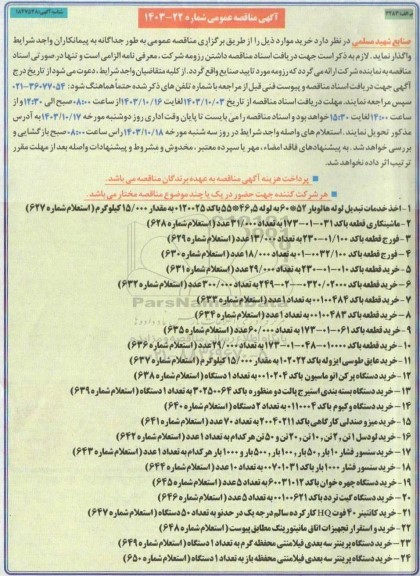 شناسه آگهی: ۱۸۴۷۵۲۸
آگهی مناقصه عمومی شماره ۲۲-۱۴۰۳
صنایع شهید مسلمی در نظر دارد خرید موارد ذیل را از طریق برگزاری مناقصه عمومی به طور جداگانه به پیمانکاران واجد شرایط
واگذار نماید. لازم به ذکر است جهت دریافت اسناد مناقصه داشتن رزومه شرکت، معرفی نامه الزامی است و تنها در صورتی اسناد
مناقصه به نماینده شرکت ارائه می گردد که رزومه مورد تایید صنایع واقع گردد. از کلیه متقاضیان واجد شرایط، دعوت می شود از تاریخ درج
آگهی جهت دریافت اسناد مناقصه و پیست فنی قبل از مراجعه با شماره تلفن های ذکر شده حتما هماهنگ شود: ۳۶۰۷۷۰۵۴-۰۲۱
سپس مراجعه نمایند. مهلت دریافت اسناد مناقصه از تاریخ ۱۴۰۳/۱۰/۰۳ لغایت ۱۴۰۳/۱۰/۱۶ از ساعت ۰۸:۰۰ صبح الی ۱۲:۳۰ و از
ساعت ۱۴:۰۰ لغایت ۱۵:۳۰ خواهد بود و اسناد مناقصه را می بایست تا پایان وقت اداری روز دوشنبه مورخه ۱۴۰۳/۱۰/۱۷ به آدرس
مذکور تحویل نمایند. استعلام های واصله واجد شرایط در روز سه شنبه مورخه ۱۴۰۳/۱۰/۱۸ راس ساعت ۰۸:۰۰ صبح بازگشایی و
بررسی خواهد شد. به پیشنهادهای فاقد امضاء، مهر یا سپرده معتبر، مخدوش و مشروط و پیشنهادات واصله بعد از مهلت مقرر
ترتیب اثر داده نخواهد شد.
پرداخت هزینه آگهی مناقصه به عهده برندگان مناقصه می باشد.
هر شرکت کننده جهت حضور در یک یا چند موضوع مناقصه مختار می باشد.
۱- اخذ خدمات تبدیل لوله هالوبار ۵۲*۶۰ به لوله ۴۶,۵*۵۵ باکد ۰۱۲۰۰۲۵ به مقدار ۱۵/۰۰۰ کیلوگرم (استعلام شماره ۶۲۷)
۲- ماشینکاری قطعه باکد ۰۳۱-۰۱-۱۷۳ به تعداد ۳۱/۰۰۰ عدد (استعلام شماره ۶۲۸)
۳- فورج قطعه باکد ۰۱/۱۰۰-۲۳۰ به تعداد ۱۳/۰۰۰ عدد (استعلام شماره ۶۲۹)
۴- فورج قطعه باکد ۰۱-۰۰۳۲/۱۰۰ به تعداد ۱۸/۰۰۰ عدد (استعلام شماره ۶۳۰)
۵- خرید قطعه باکد ۰۱۰-۰۱-۲۳۰ به تعداد ۲۹/۰۰۰ عدد (استعلام شماره ۶۳۱)
۶- خرید قطعه باکد ۰۲۴۹-۰۰۲-۰۳۲۰/۰۲۰۰۰ به تعداد ۳۰۰/۰۰۰ عدد (استعلام شماره ۶۳۲)
۷- خرید قطعه باکد ۰۰۱۰۴۸۴ به تعداد ۱ عدد (استعلام شماره ۶۳۳)
۸- خرید قطعه باکد ۰۰۱۰۴۸۳ به تعداد ۱ عدد (استعلام شماره ۶۳۴)
۹- خرید قطعه باکد ۰۶۱-۰۱-۱۷۳ به تعداد ۶۰/۰۰۰ عدد (استعلام شماره ۶۳۵)
۱۰- خرید قطعه باکد ۰۱۰۰۰-۰۴۸-۰۱-۱۷۳ به تعداد ۲۹/۰۰۰ عدد (استعلام شماره ۶۳۶)
۱۱- خرید عایق طوسی ایزوله باکد ۱۰۲۰۲۲ به مقدار ۱۵/۰۰۰ کیلوگرم (استعلام شماره ۶۳۷)
۱۲- خرید دستگاه پرکن اتوماسیون باکد ۰۰۱۰۲۰۴ به تعداد ۱ دستگاه (استعلام شماره ۶۳۸)
۱۳- خرید دستگاه بسته بندی استرچ پالت دو منظوره باکد ۳۰۲۵۰۰۶۴ به تعداد ۱ دستگاه (استعلام شماره ۶۳۹)
۱۴- خرید دستگاه وکیوم باکد ۰۱۱۰۰۰۴ به تعداد ۲ دستگاه (استعلام شماره ۶۴۰)
۱۵- خرید میز و صندلی کارگاهی باکد ۲۰۰۴۰۲۱۱ به تعداد ۷۰ عدد (استعلام شماره ۶۴۱)
۱۶- خرید لودسل ۱ تن، ۲ تن، ۱۰ تن، ۲۰ تن و ۵۰ تن هر کدام به تعداد ۱ عدد (استعلام شماره ۶۴۲)
۱۷- خرید سنسور فشار ۱۰ بار، ۵۰ بار، ۱۰۰ بار، ۵۰۰ بار و ۱۰۰۰ بار هر کدام به تعداد ۱ عدد (استعلام شماره ۶۴۳)
۱۸- خرید سنسور فشار ۱۰۰۰ بار باکد ۰۰۷۰۱۰۳۱ به تعداد ۱۰ عدد (استعلام شماره ۶۴۴)
۱۹- خرید دستگاه چهره خوان باکد ۶۰۰۳۱۰۱۲ به تعداد ۵ عدد (استعلام شماره ۶۴۵)
۲۰- خرید دستگاه گیت تردد باکد ۰۰۱۰۰۶۲۱ به تعداد ۵ عدد (استعلام شماره ۶۴۶)
۲۱- خرید کانتینر ۴۰ فوت HQ کارکرده سالم درجه یک در حد نو به تعداد ۵۰ دستگاه (استعلام شماره ۶۴۷)
۲۲- خرید و استقرار تجهیزات اتاق مانیتورینگ مطابق پیوست (استعلام شماره ۶۴۸)
۲۳- خرید دستگاه پرینتر سه بعدی فیلامنتی محفظه گرم به تعداد ۱ دستگاه (استعلام شماره ۶۴۹)
۲۴- خرید دستگاه پرینتر سه بعدی فیلامنتی محفظه باز به تعداد ۱ دستگاه (استعلام شماره ۶۵۰)
ParsNamadData